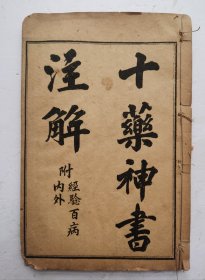 十藥神書
注解
附經驗百病
內外